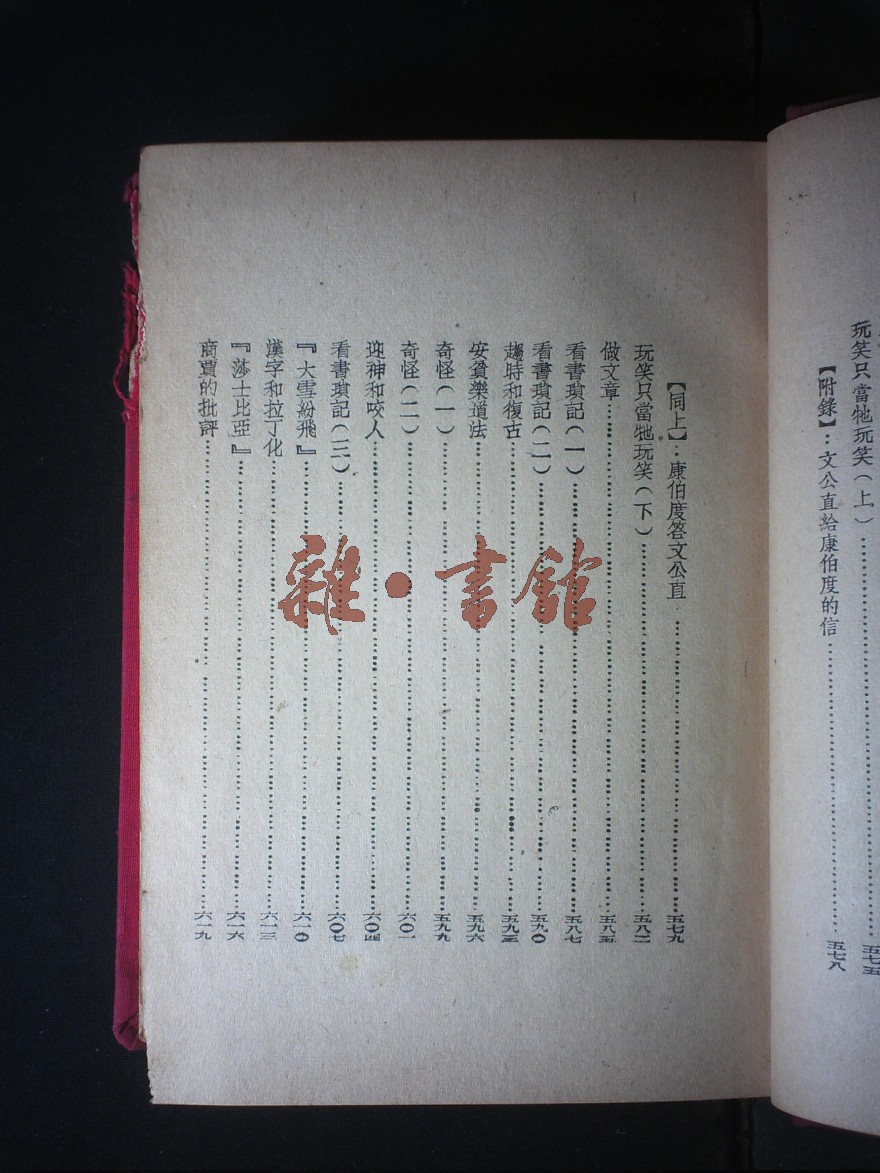 玩笑只當牠玩笑(上)……五七五
【附錄】:文公直給康伯度的信……五七八
【同上】:康伯度答文公直……五七九
玩笑只當牠玩笑(下)……五八二
做文章……五八五
看書瑣記(一)……五八七
看書瑣記(二)……五九〇
趨時和復古……五九三
安貧樂道法……五九六
奇怪(一)……五九九
奇怪(二)……六〇一
迎神和咬人……六〇四
看書瑣記(三)……六〇七
『大雪紛飛』……六一〇
漢字和拉丁化……六一三
『莎士比亞』……六一六
商賈的批評……六一九
雜·書館